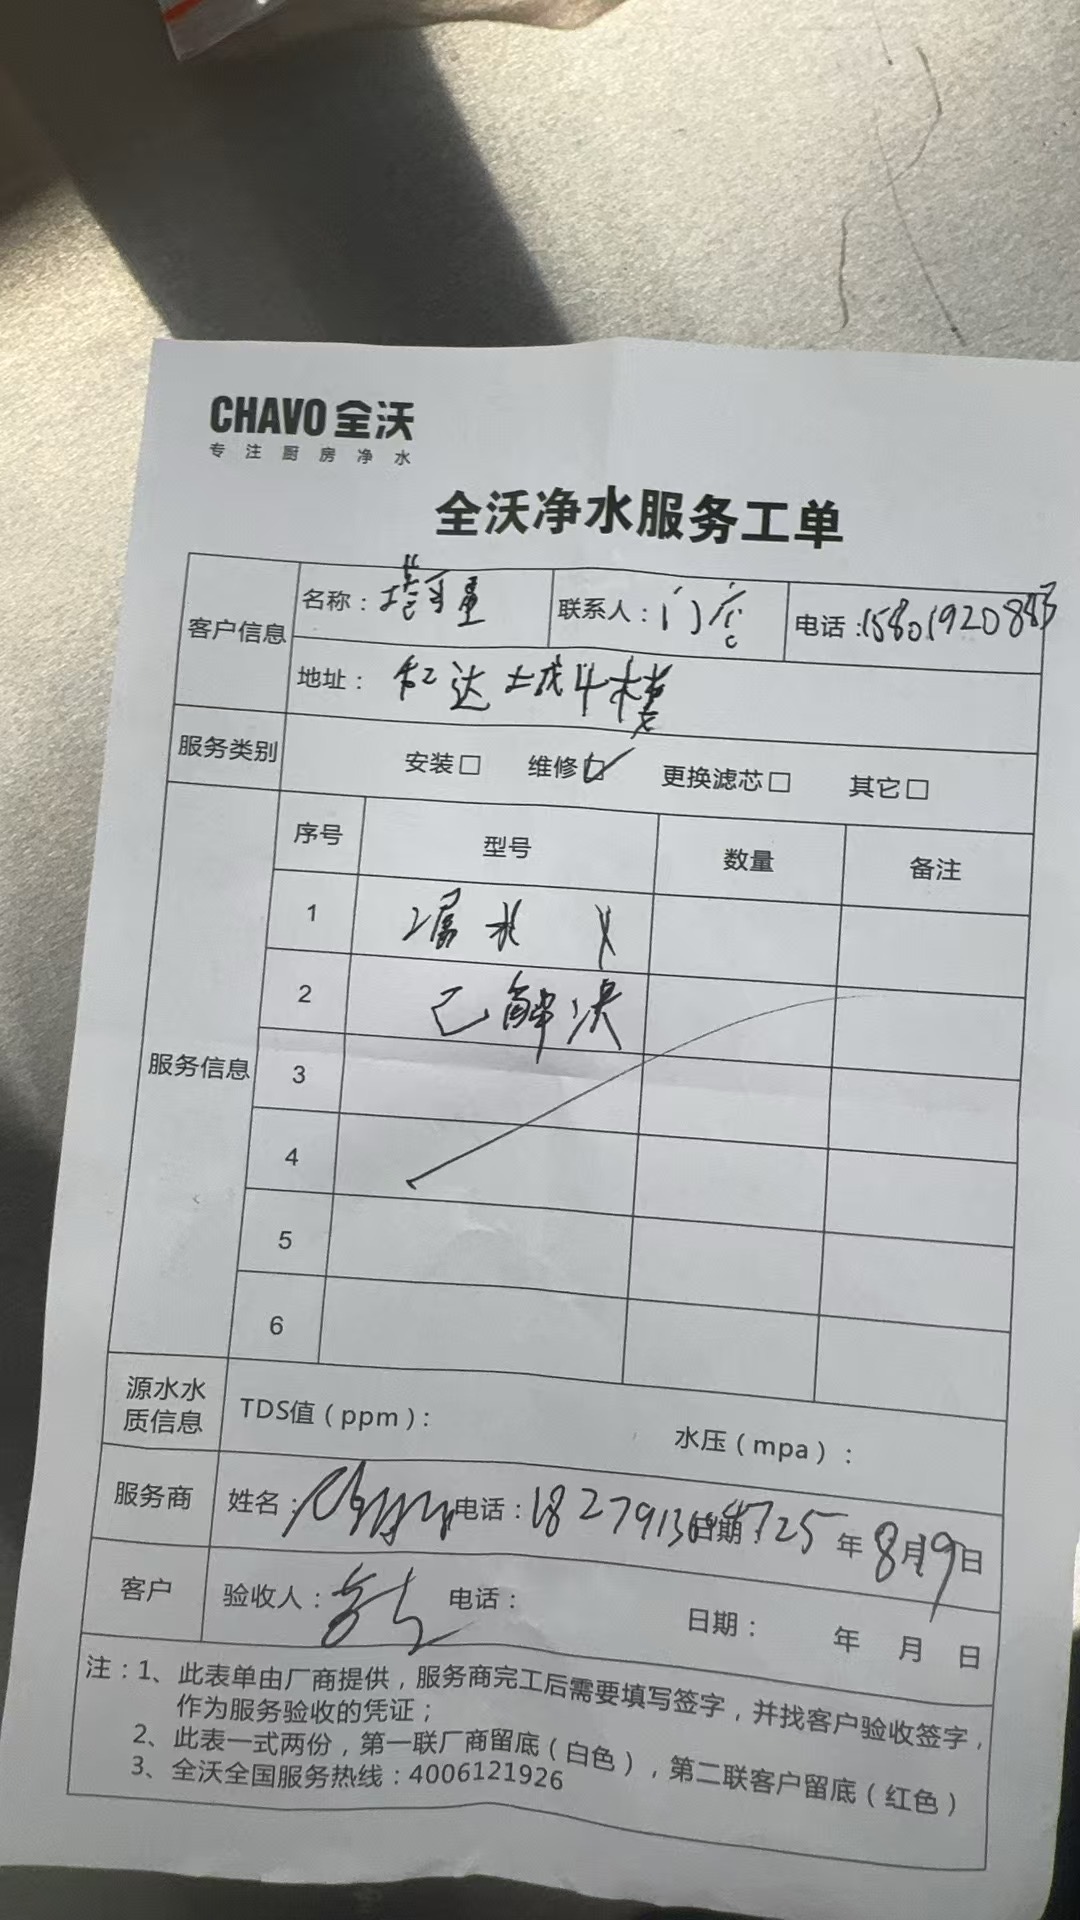 CHAVO 全沃
专注厨房净水
全沃净水服务工单
客户信息 名称：塔哥疆 联系人：门店 电话：
地址：虹达城4楼
服务类别 安装□ 维修☑ 更换滤芯□ 其它□
服务信息 序号 型号 数量 备注
1 漏水
2 已解决
3
4
5
6
源水水质信息 TDS值（ppm）： 水压（mpa）：
服务商 姓名： 电话： 日期： 25年8月9日
客户 验收人： 电话： 日期： 年 月 日
注：1、此表单由厂商提供，服务商完工后需要填写签字，并找客户验收签字，
作为服务验收的凭证；
2、此表一式两份，第一联厂商留底（白色），第二联客户留底（红色）
3、全沃全国服务热线：4006121926